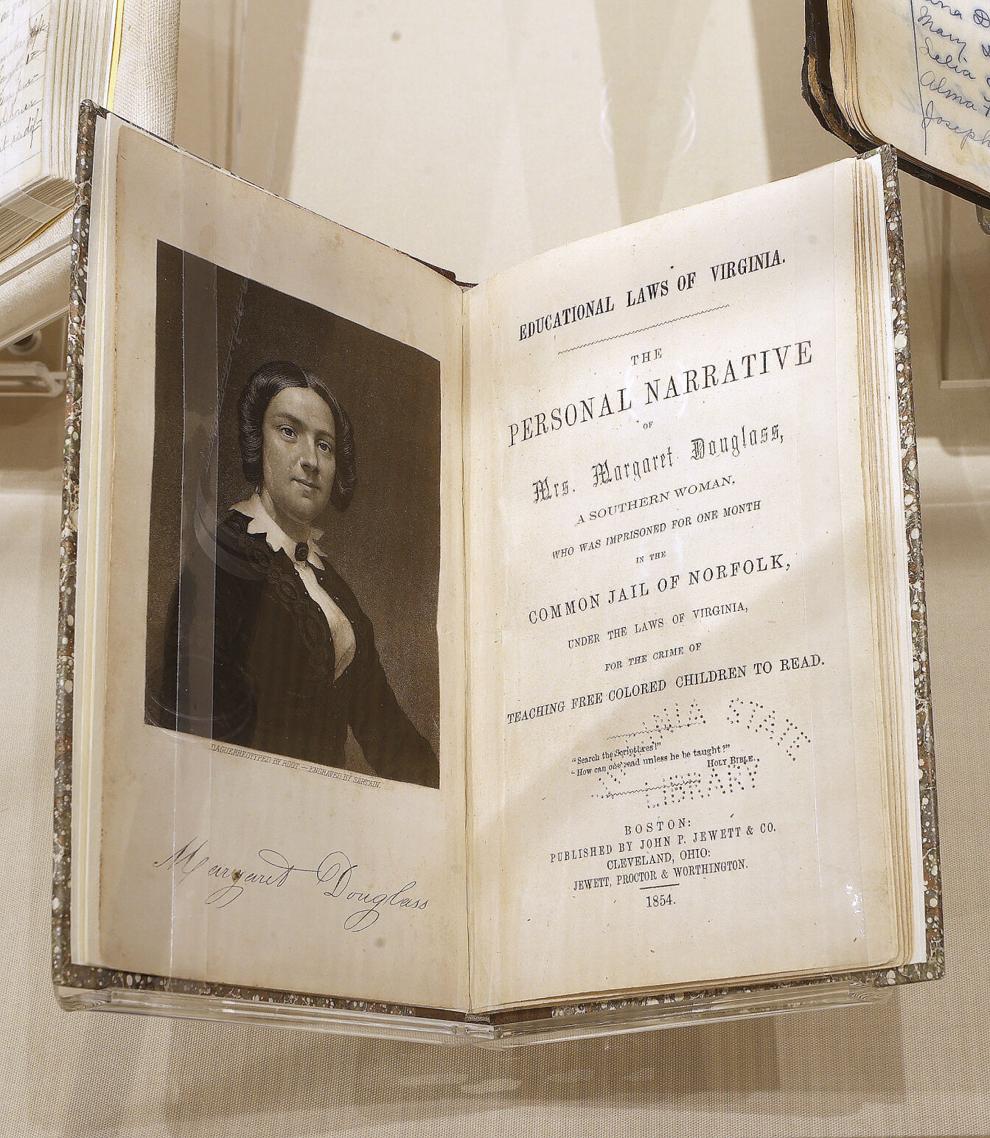 DAGUERREOTYPED BY ROOT — ENGRAVED BY SARTAIN.
Margaret Douglass
EDUCATIONAL LAWS OF VIRGINIA.
THE
PERSONAL NARRATIVE
OF
Mrs. Margaret Douglass,
A SOUTHERN WOMAN,
WHO WAS IMPRISONED FOR ONE MONTH
IN THE
COMMON JAIL OF NORFOLK,
UNDER THE LAWS OF VIRGINIA,
FOR THE CRIME OF
TEACHING FREE COLORED CHILDREN TO READ.
"Search the Scriptures!"
"How can one read unless he be taught?"
HOLY BIBLE.
STATE
LIBRARY
BOSTON:
PUBLISHED BY JOHN P. JEWETT & CO.
CLEVELAND, OHIO:
JEWETT, PROCTOR & WORTHINGTON.
1854.
Mary
Lelia
Alma
Joseph